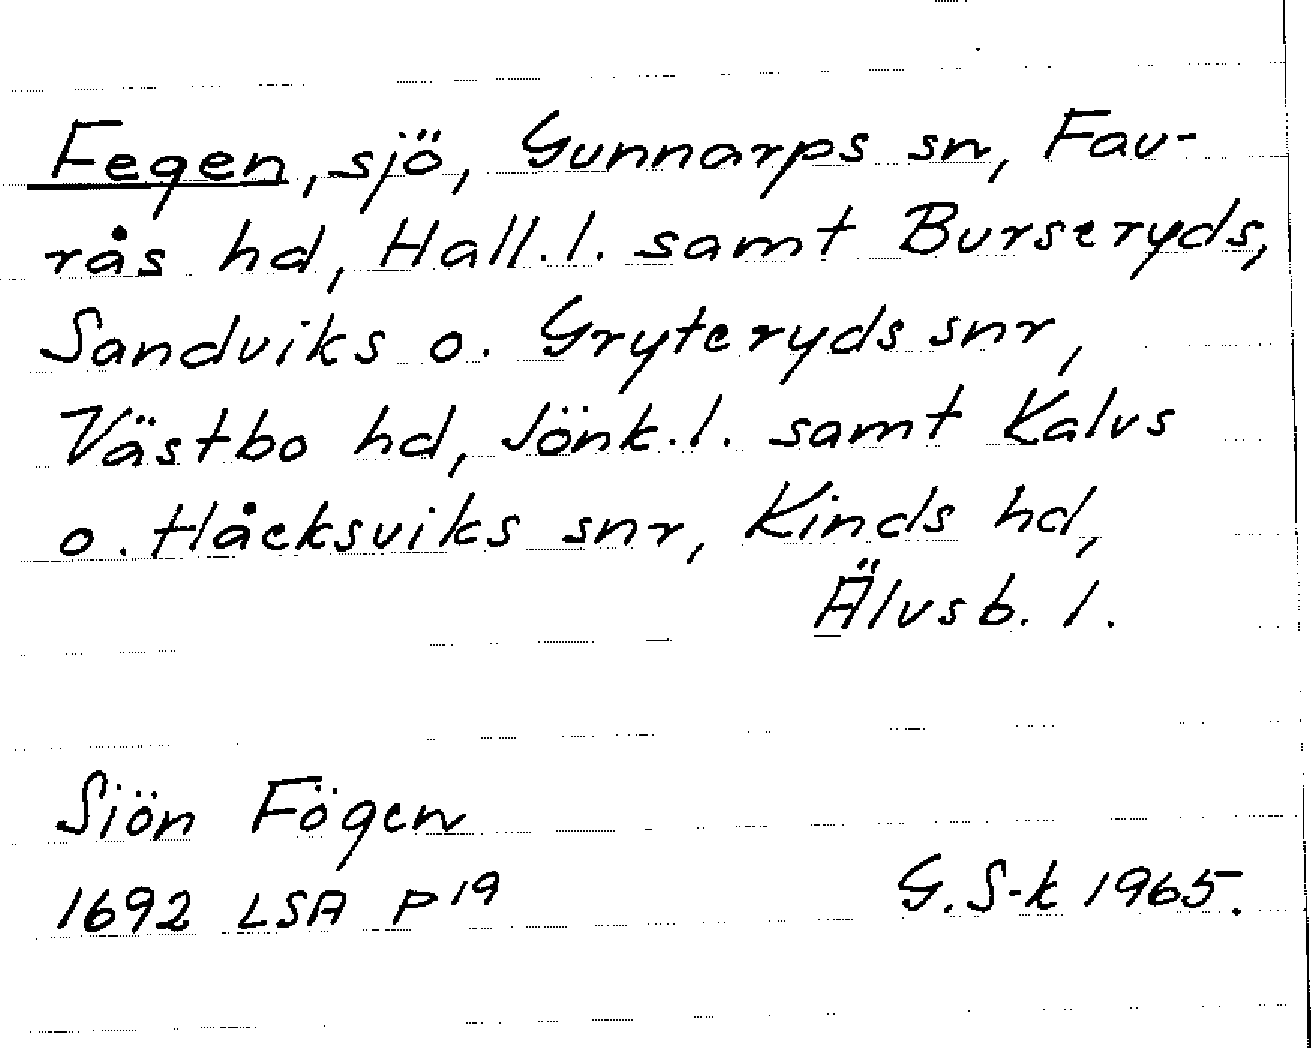 Fegen, sjö, Gunnarps sn, Fav-
rås hd, Hall.l. samt Burseryds,
Sandviks o. Gryteryds snr,
Västbo hd, Jönk.l. samt Kalvs
o. Håcksviks snr, Kinds hd,
Älvsb. l.
Siön Fögen
1692 LSA P19
G.S-k 1965.